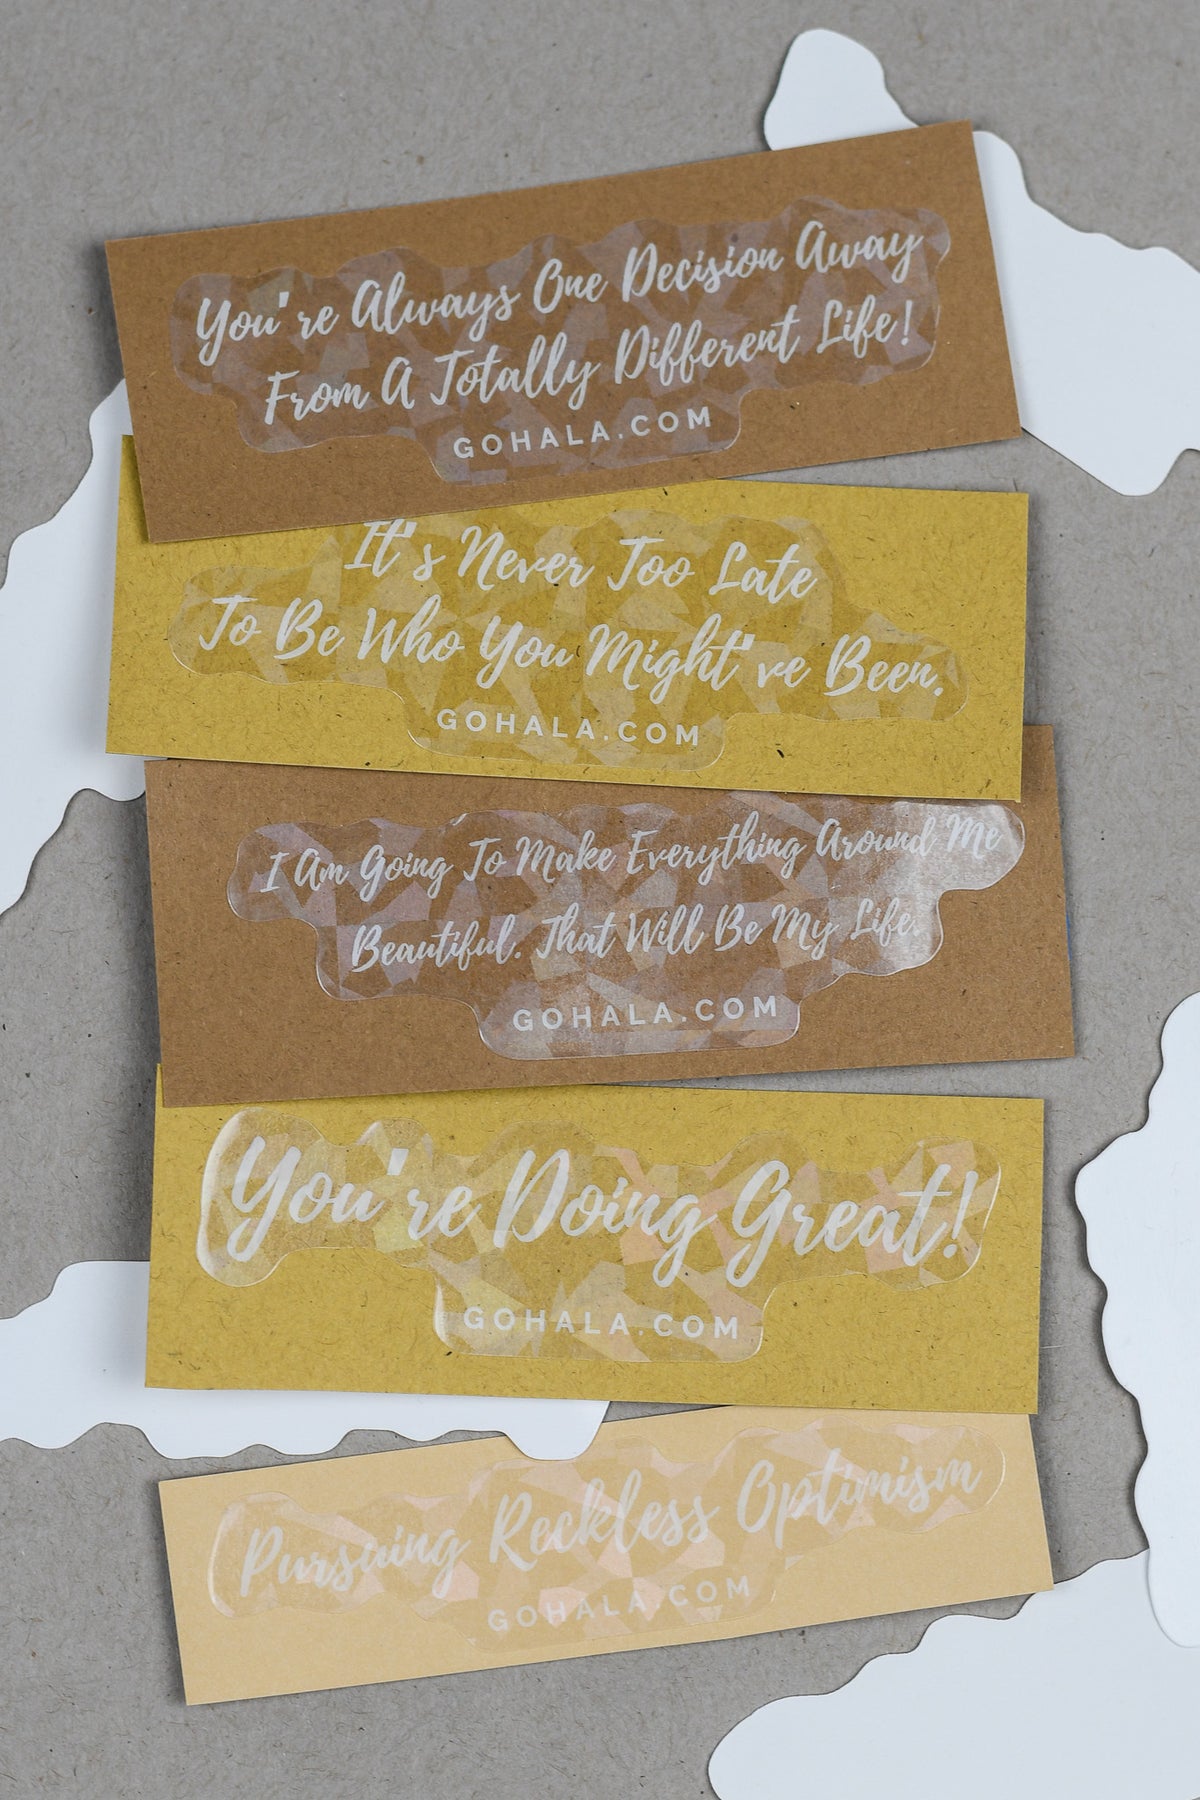 You're Always One Decision Away
From A Totally Different Life!
GOHALA.COM
It's Never Too Late
To Be Who You Might've Been.
GOHALA.COM
I Am Going To Make Everything Around Me
Beautiful. That Will Be My Life.
GOHALA.COM
You're Doing Great!
GOHALA.COM
Pursuing Reckless Optimism
GOHALA.COM